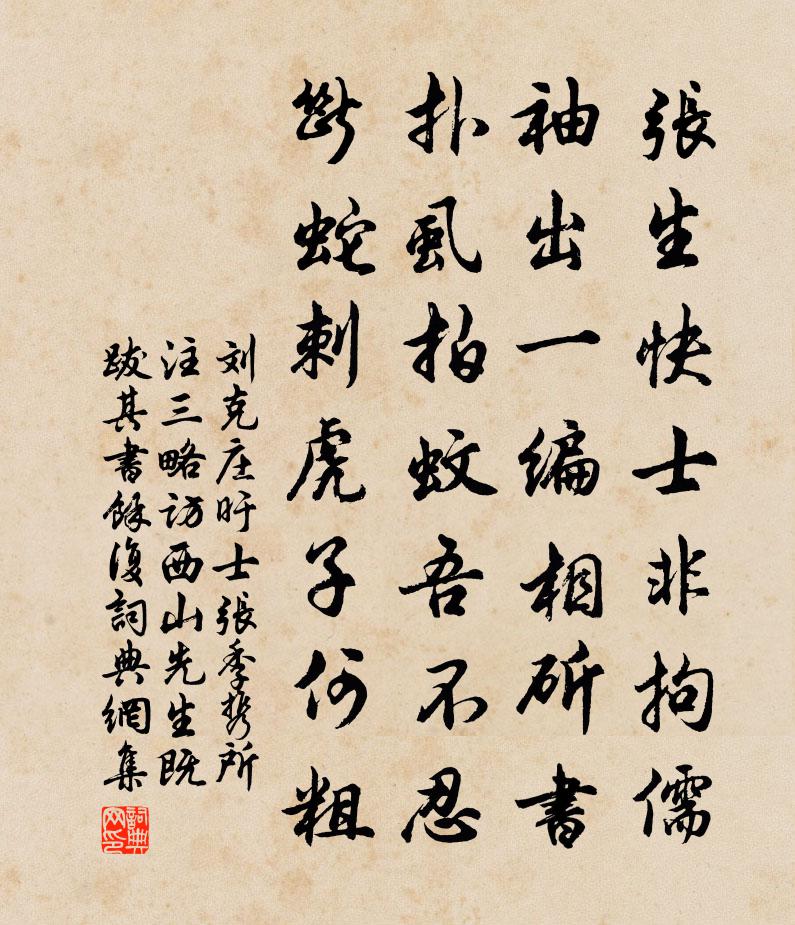 張生快士非拘儒
袖出一编相斫書
扑虱拍蚊吾不忍
斷蛇刺虎子何粗
刘克庄旴士張季携所
注三略访西山先生既
跋其書餘復詞典網集
詞典网印